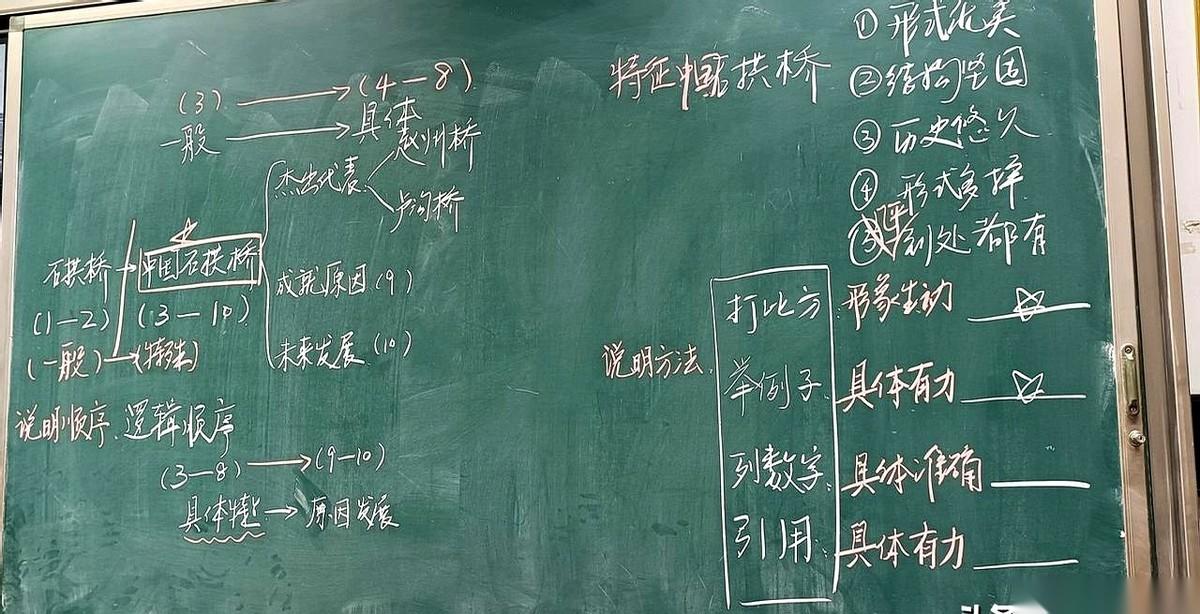 (3) → (4—8)
一般 → 具体
杰出代表 赵州桥
卢沟桥
石拱桥 → 中国石拱桥
(1—2) (3—10)
(一般) → (特殊)
成就原因(9)
未来发展(10)
说明顺序、逻辑顺序
(3—8) → (9—10)
具体特 → 原因发展
特征中国石拱桥
① 形式优美
② 结构坚固
③ 历史悠久
④ 形式多样
⑤ 到处都有
说明方法
打比方:形象生动
举例子:具体有力
列数字:具体准确
引用:具体有力